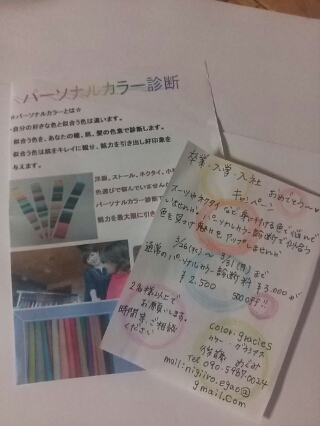 パーソナルカラー診断
☆パーソナルカラーとは☆
自分の好きな色と似合う色は違います。
似合う色を、あなたの瞳、肌、髪の色素で診断します。
似合う色は肌をキレイに魅せ、魅力を引き出し好印象を
与えます。
洋服、ストール、ネクタイ、小
色選びで悩んでいません
パーソナルカラー診断で
魅力を最大限に引き
卒業・入学・入社
おめでとう〜♥
キャンペーン
スーツやネクタイなど身に付ける色で悩んで
いませんか?パーソナルカラー診断で似合う
色を見つけ魅力をアップしませんか
3/26(火)〜3/31(月)まで
通常のパーソナルカラー診断料¥3,000が
¥2,500 500円OFF!!
2名様以上で
お願いします。
時間等、ご相談
ください
color.gracies
カラー グラシアス
後藤 めぐみ
Tel 090-5967-0024
mail:nigiiro.egao@
gmail.com